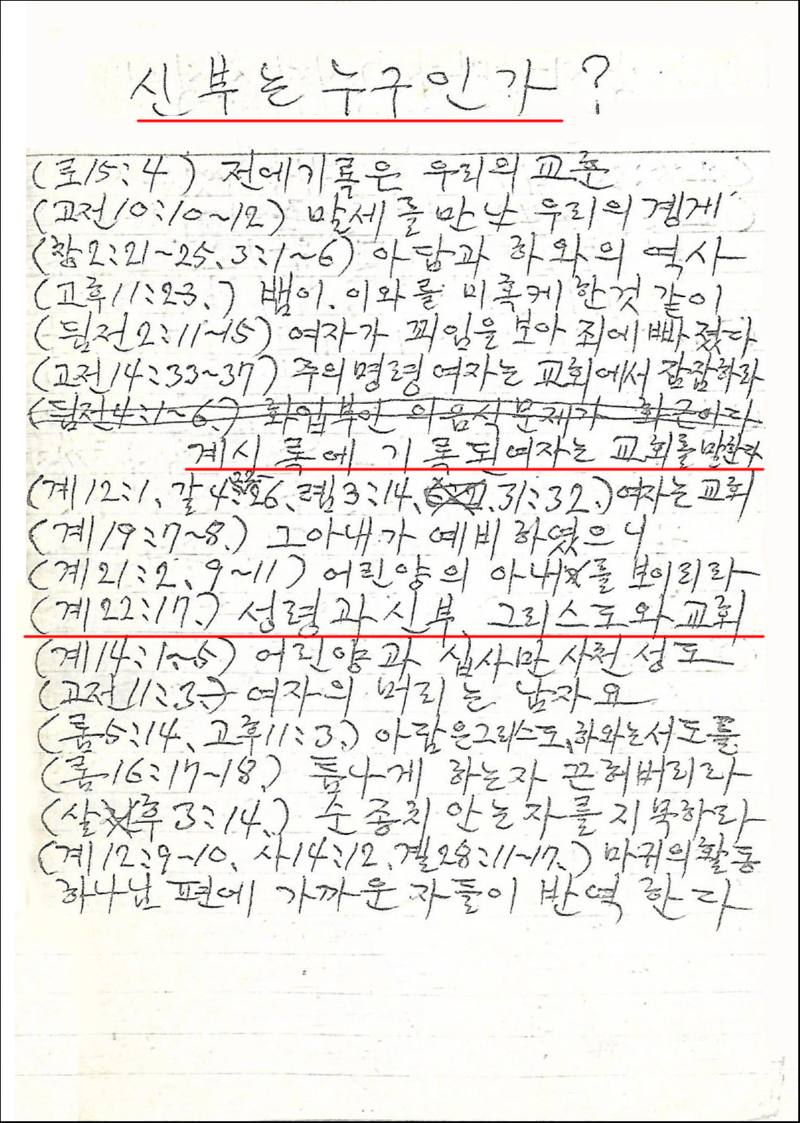 신부는 누구인가?
(로15:4) 전에기록은 우리의 교훈
(고전10:10~12) 말세를 만난 우리의 곙게
(창2:21~25. 3:1~6) 아담과 하와의 역사
(고후11:23.) 뱀이. 이와를 미혹케 한것 같이
(딤전2:11~15) 여자가 꾀임을 보아 죄에 빠졌다
(고전14:33~37) 주의명령 여자는 교회에서 잠잠하라
(딤전4:1~6.) 의음식문제가
계시록에 기록된여자는 교회를 말한다
(계12:1. 갈4:26. 렘3:14. 31:32.) 여자는교회
(계19:7~8.) 그아내가 예비하였으니
(계21:2. 9~11) 어린양의 아내를 보이리라
(계22:17.) 성령과신부 그리스도와교회
(계14:1~5) 어린양과 십사만사천성도
(고전11:3.) 여자의 머리는 남자요
(롬5:14. 고후11:3.) 아담은그리스도.하와는서도를
(롬16:17~18.) 틈나게 하는자 끈허버리라
(살후3:14.) 순종치 안는자를지목하라
(계12:9~10. 사14:12. 겔28:11~17.) 마귀의활동
하나님 편에 가까운 자들이 반역 한다